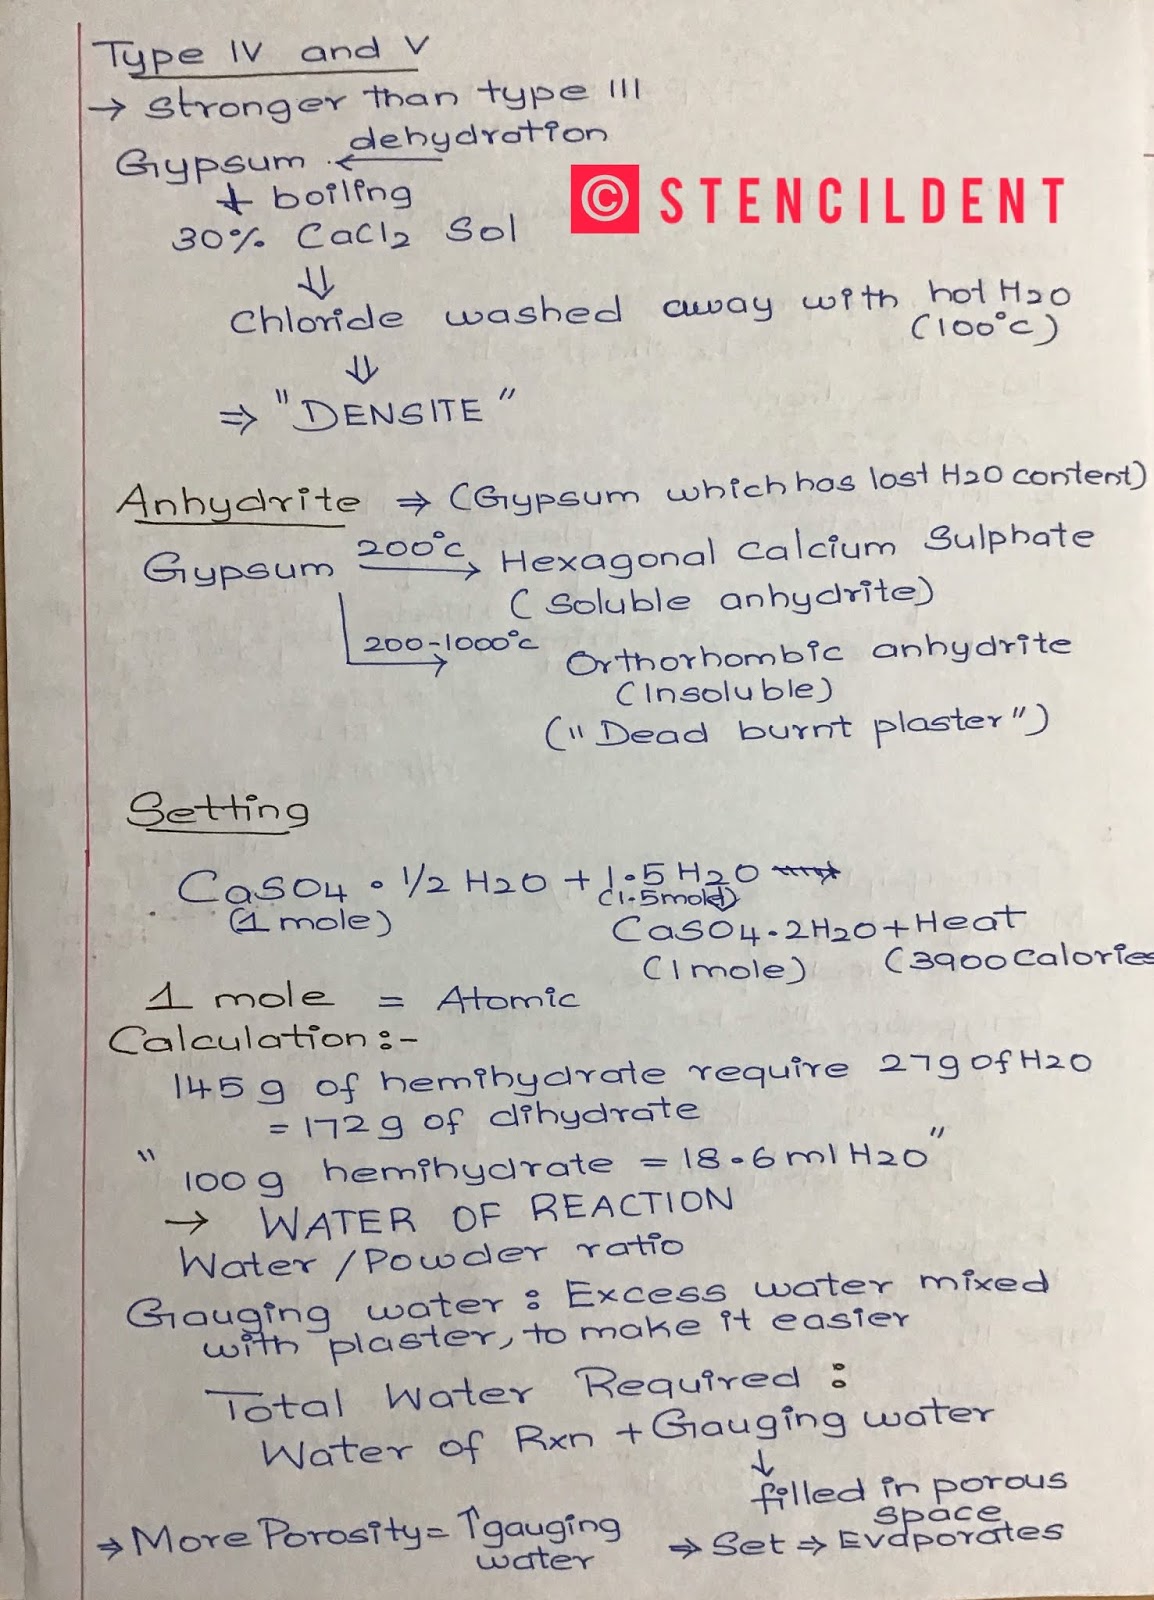 Type IV and V
→ stronger than type III
Gypsum ← dehydration
+ boiling
30% CaCl2 Sol
© STENCILDENT
⇓
Chloride washed away with hot H2O
(100°C)
⇓
⇒ "DENSITE"
Anhydrite ⇒ (Gypsum which has lost H2O content)
Gypsum 200°C → Hexagonal Calcium Sulphate
(Soluble anhydrite)
200-1000°C → Orthorhombic anhydrite
(Insoluble)
("Dead burnt plaster")
Setting
CaSO4 • 1/2 H2O + 1.5 H2O →
(1 mole) (1.5mole)
CaSO4.2H2O + Heat
(1 mole) (3900 Calories
1 mole = Atomic
Calculation :-
145 g of hemihydrate require 27g of H2O
= 172 g of dihydrate
" 100 g hemihydrate = 18.6 ml H2O"
→ WATER OF REACTION
Water / Powder ratio
Gauging water : Excess water mixed
with plaster, to make it easier
Total Water Required :
Water of Rxn + Gauging water
↓
filled in porous
space
⇒ More Porosity = ↑ gauging
water
⇒ Set ⇒ Evaporates